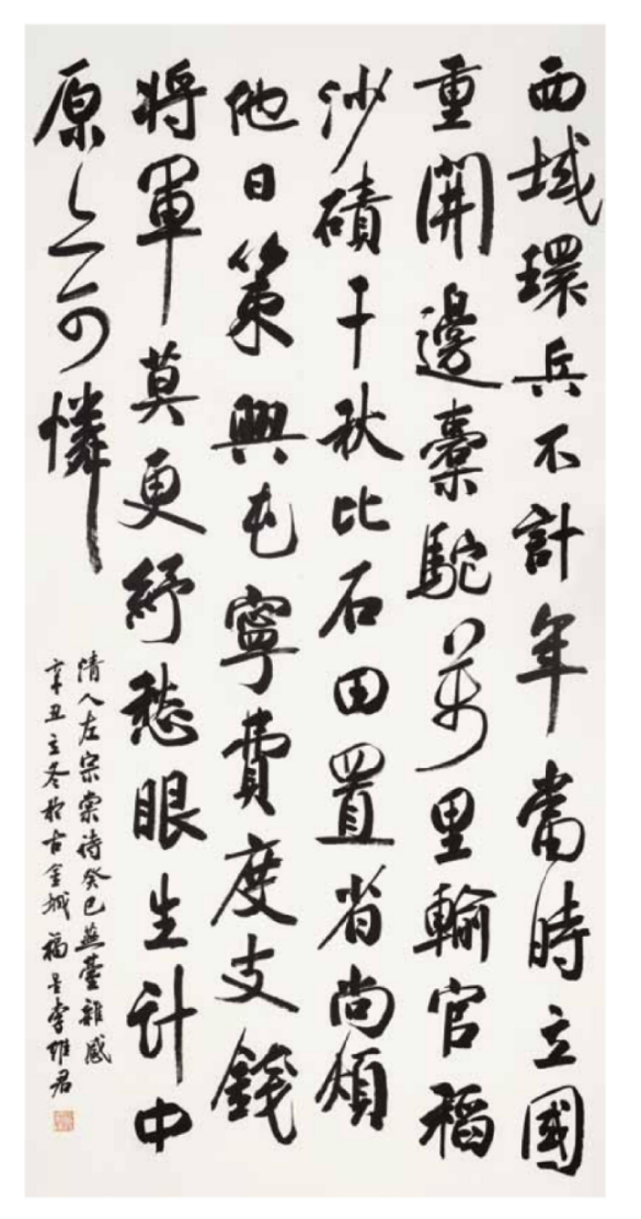 西域環兵不計年當時立國
重開邊橐駝萬里輸官稻
沙磧千秋比石田置省尚煩
他日策興屯寧費度支錢
將軍莫更紓愁眼生計中
原亦可憐
清人左宗棠詩癸巳燕臺雜感
辛丑立冬於古金城福星李雄君